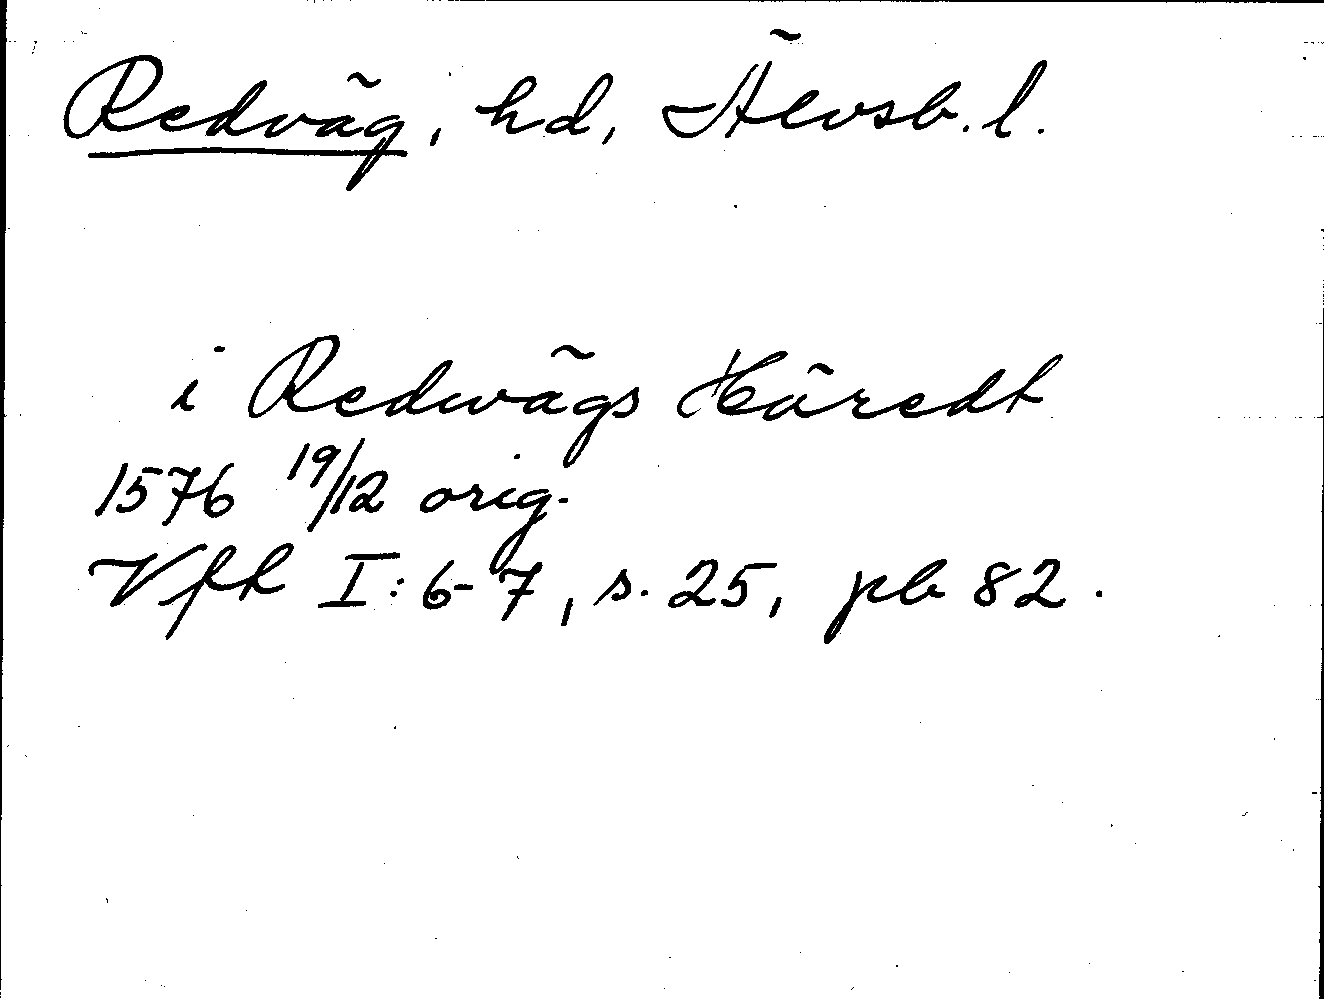 Redväg, hd, Älvsb. l.
i Redwägs Häredt
1576 19/12 orig.
Vfh I: 6-7, s. 25, pb 82.